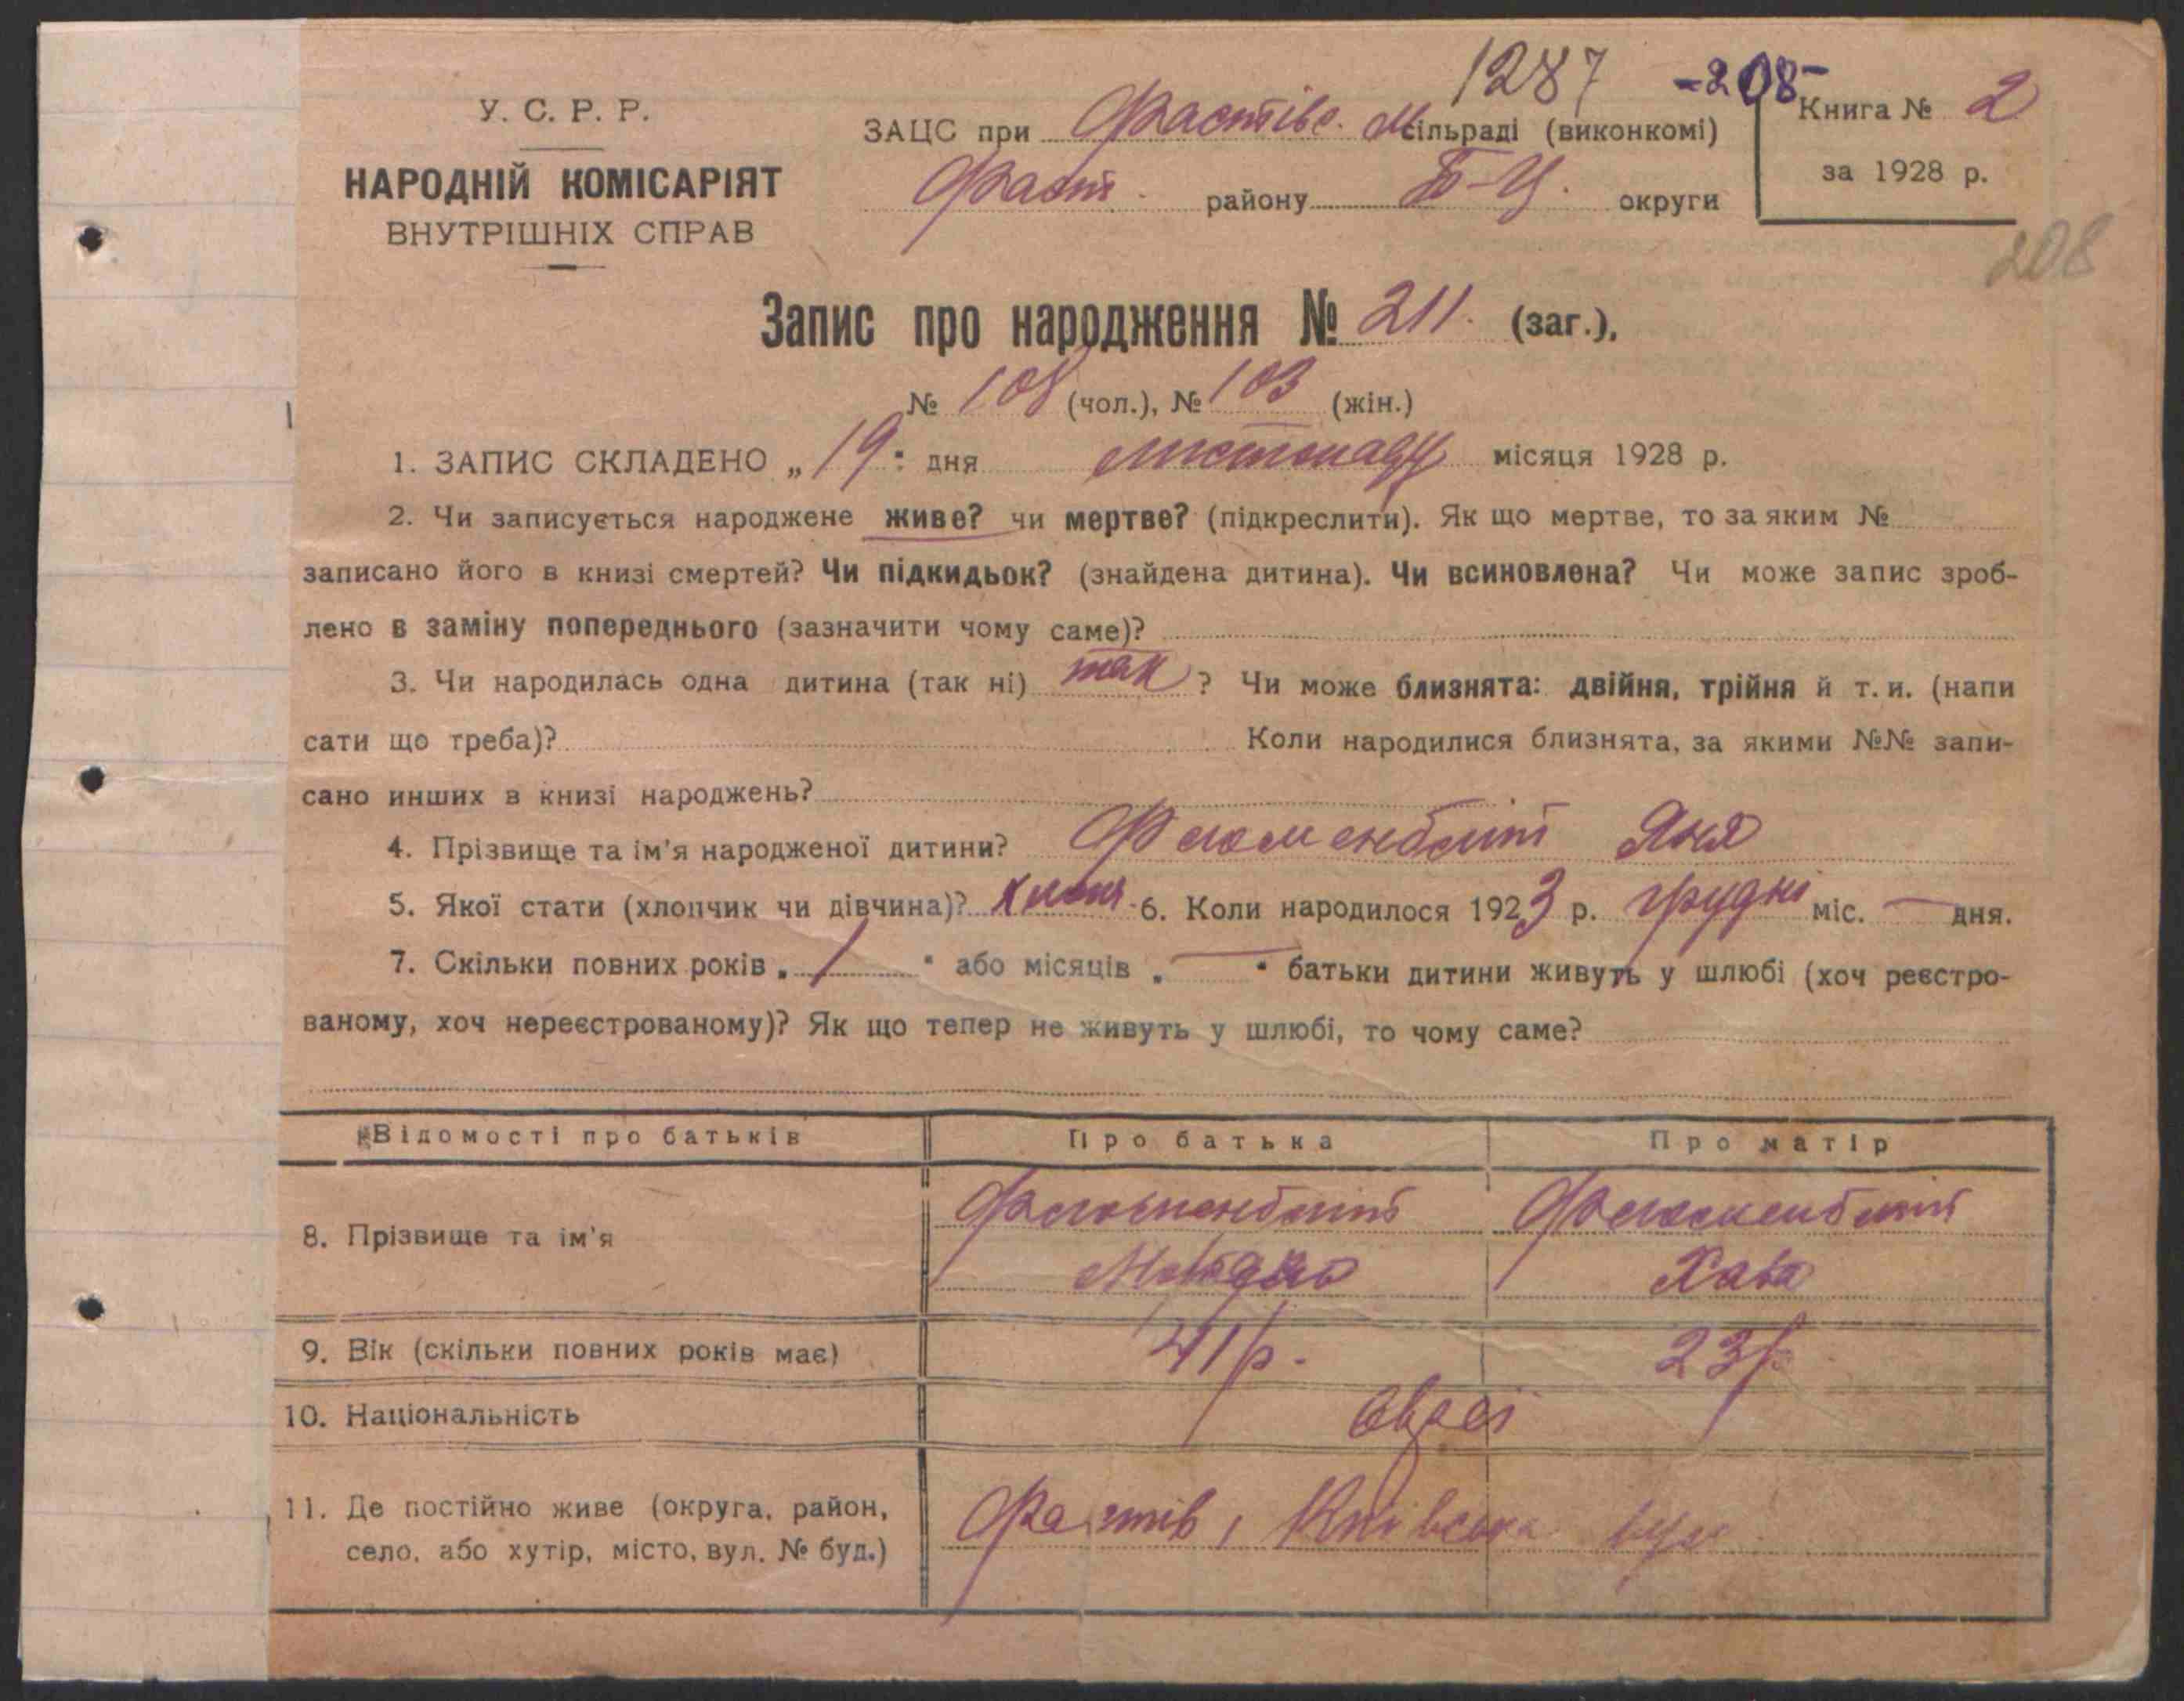 1287 -208-
У. С. Р. Р.
НАРОДНІЙ КОМІСАРІЯТ
ВНУТРІШНІХ СПРАВ
ЗАЦС при Фастівс. М сільраді (виконкомі)
Фаст. району Б-Ц. округи
Книга № 2
за 1928 р.
208
Запис про народження № 211. (заг.),
№ 108 (чол.), № 103 (жін.)
1. ЗАПИС СКЛАДЕНО „ 19 " дня листопаду місяця 1928 р.
2. Чи записується народжене живе? чи мертве? (підкреслити). Як що мертве, то за яким №
записано його в книзі смертей? Чи підкидьок? (знайдена дитина). Чи всиновлена? Чи може запис зроб-
лено в заміну попереднього (зазначити чому саме)?
3. Чи народилась одна дитина (так ні) так ? Чи може близнята: двійня, трійня й т. и. (напи
сати що треба)? Коли народилися близнята, за якими №№ запи-
сано инших в книзі народжень?
4. Прізвище та ім'я народженої дитини?
5. Якої стати (хлопчик чи дівчина)? 6. Коли народилося 1923 р. грудні міс. — дня.
7. Скільки повних років „ 1 " або місяців „ — " батьки дитини живуть у шлюбі (хоч реєстро-
ваному, хоч нереєстрованому)? Як що тепер не живуть у шлюбі, то чому саме?
Відомості про батьків Про батька Про матір
8. Прізвище та ім'я
Хава
9. Вік (скільки повних років має) 41 р. 23 р.
10. Національність євреї
11. Де постійно живе (округа, район,
село, або хутір, місто, вул. № буд.)
Фастів, Київська вул.